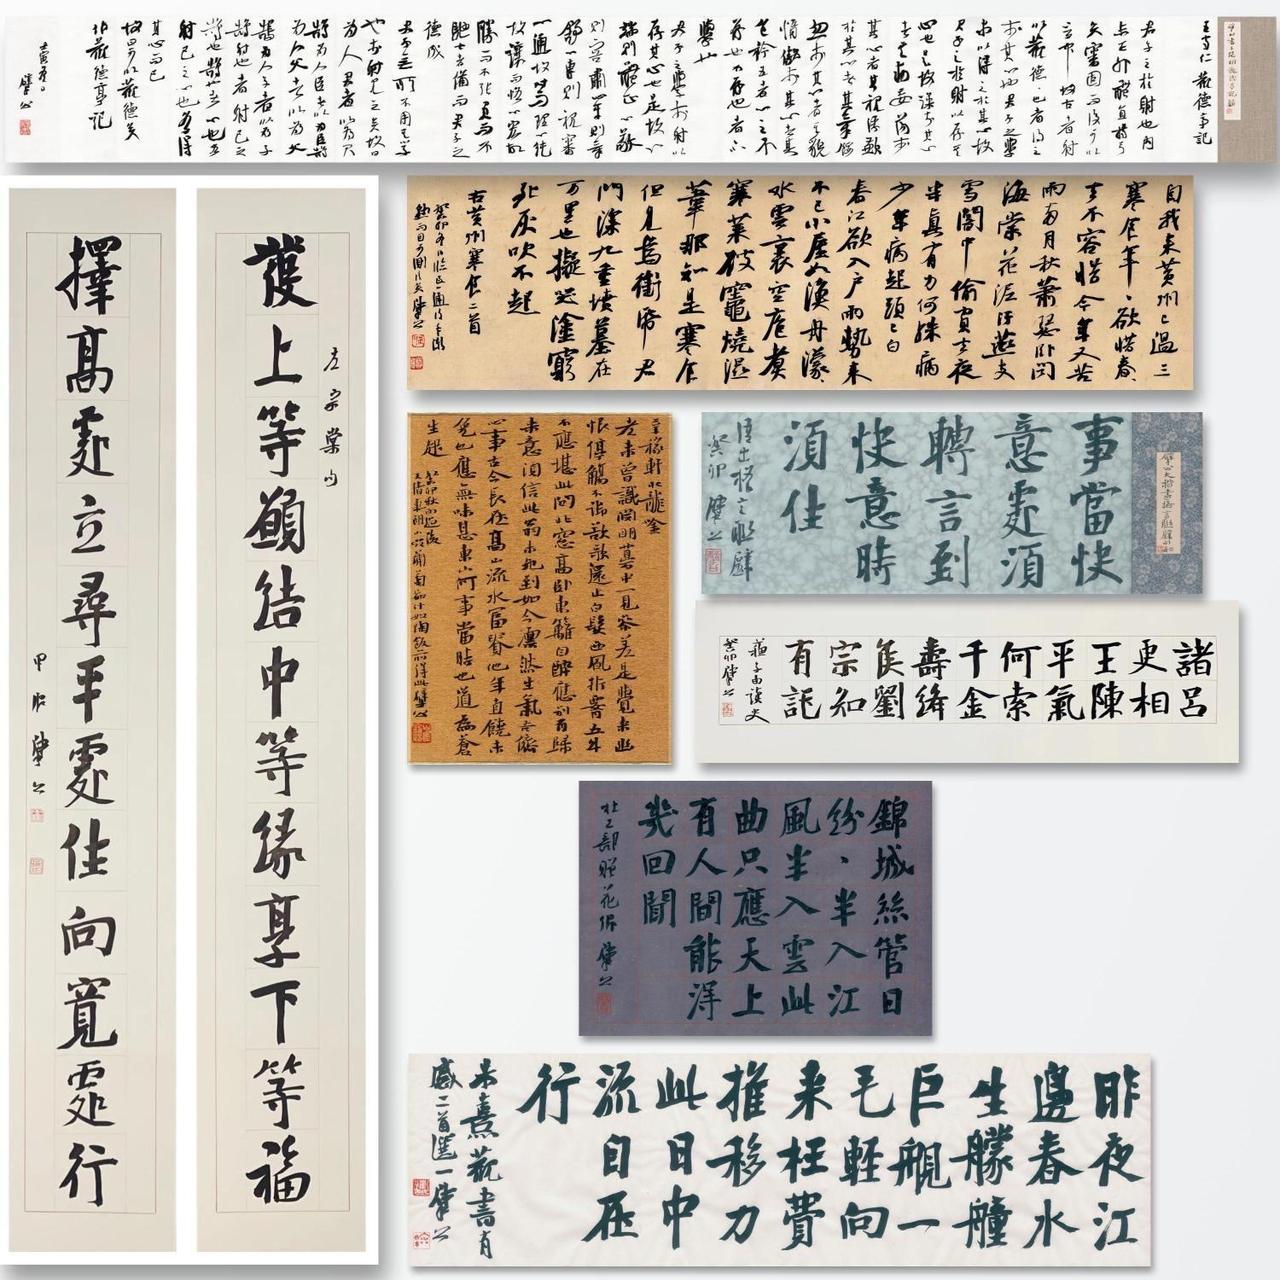 王守仁觀德亭記
君子之於射也內
志正外體直持弓
矢審固而後可以
言中故古者射
以觀德德也者得之
於其心也君子之學
求以得之於其心故
君子之於射以存其
心也是故慄於其心
者其動妄蕩於
其心者其視浮歉
於其心者其氣餒
忽於其心者其貌
惰傲於其心者其
色矜五者心之不
存也不存也者不
學也
君子之學於射以
存其心也是故心
端則體正心敬
則容肅心平則氣
舒心專則視審
心通故時而理心純
故讓而恪心宏故
勝而不張負而不
弛七者備而君子之
德成
君子無所不用其學
也於射見之矣故曰
為人君者以為君
鵠為人臣者以為臣鵠
為人父者以為父
鵠為人子者以為子
鵠射也者射己之
鵠也鵠也者心也各
射己之心也各得
其心而已
故曰可以觀德矣
作觀德亭記
左宗棠句
護上等願結中等緣享下等福
擇高處立尋平處住向寬處行
甲辰肇公
自我來黃州已過三
寒食年々欲惜春
去不容惜今年又苦
雨兩月秋蕭瑟臥聞
海棠花泥汙燕支
雪闇中偷負去夜
半真有力何殊病
少年病起頭已白
春江欲入戶雨勢來
不已小屋如漁舟濛々
水雲裏空庖煮
寒菜破竈燒濕
葦那知是寒食
但見烏銜帋君
門深九重墳墓在
万里也擬哭塗窮
死灰吹不起
右黃州寒食二首
辛稼軒水龍吟
老來曾識淵明夢中一見參差是覺來幽
恨停觴不御欲歌還止白髮西風折腰五斗
不應堪此問北窗高臥東籬自醉應別有歸
來意須信此翁未死到如今凜然生氣吾儕
心事古今長在高山流水富貴他年直饒未
免也應無味甚東山何事當時也道為蒼
生起
事當快
意處須
轉言到
快意時
須住
癸卯肇公
諸呂
更相
王陳
平氣
何索
千金
壽絳
侯劉
宗知
有託
蘇子由讀史
癸卯肇公
錦城絲管日
紛々半入江
風半入雲此
曲只應天上
有人間能得
幾回聞
杜工部贈花卿肇公
昨夜江
邊春水
生艨艟
巨艦一
毛輕向
來枉費
推移力
此日中
流自在
行
朱熹觀書有
感二首選一肇公